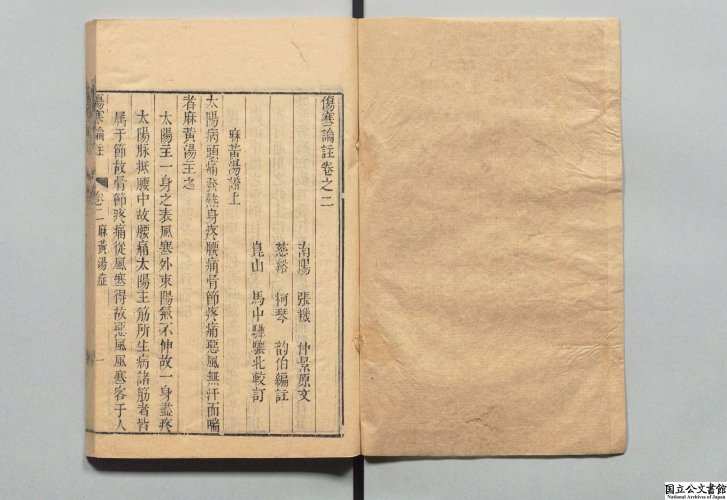 傷寒論註卷之二
南陽 張機 仲景原文
慈谿 柯琴 韵伯編註
崑山 馬中驊驤北較訂
麻黃湯證上
太陽病頭痛發熱身疼腰痛骨節疼痛惡風無汗而喘
者麻黃湯主之
太陽主一身之表風寒外束陽氣不伸故一身盡疼
太陽脉抵腰中故腰痛太陽主筋所生病諸筋者皆
属于節故骨節疼痛從風寒得故惡風風寒客于人
傷寒論註 卷二 麻黃湯症 一
国立公文書館
National Archives of Japan